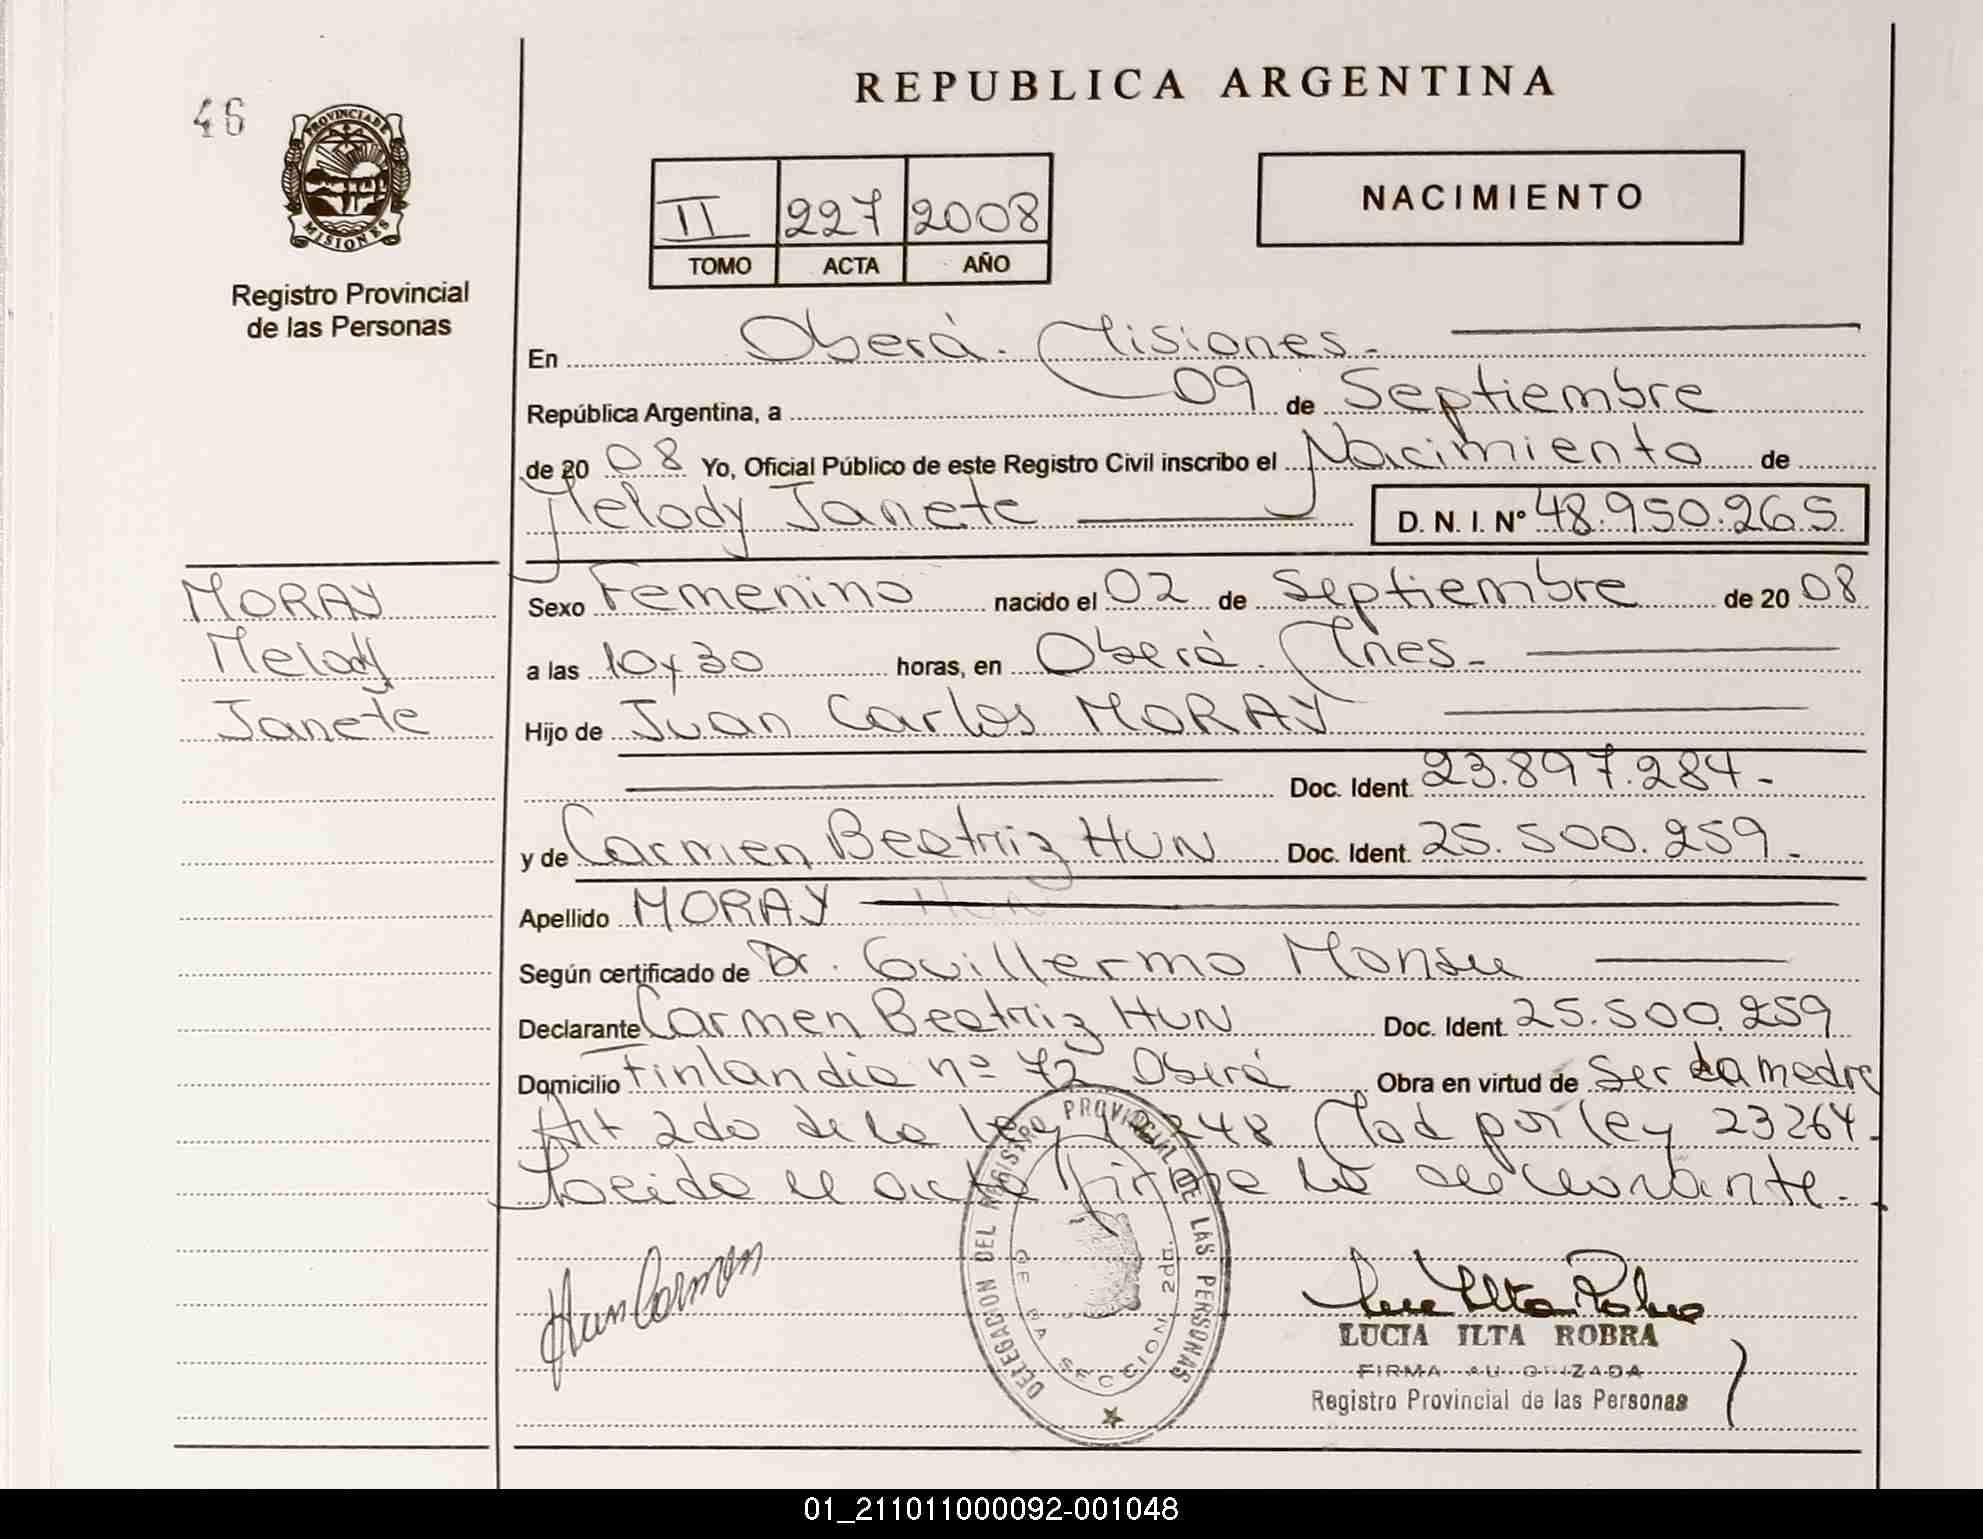 46
PROVINCIA DE
MISIONES
Registro Provincial
de las Personas
REPUBLICA ARGENTINA
II 227 2008
TOMO ACTA AÑO
NACIMIENTO
En Oberá. Misiones.-
República Argentina, a 09 de Septiembre
de 2008 Yo, Oficial Público de este Registro Civil inscribo el Nacimiento de
Melody Janete D. N. I. Nº 48.950.265
MORAY
Melody
Janete
Sexo Femenino nacido el 02 de Septiembre de 2008
a las 10y30 horas, en Oberá. Mnes.-
Hijo de Juan Carlos MORAY
Doc. Ident. 23.897.284.-
y de Carmen Beatriz HUN Doc. Ident. 25.500.259.-
Apellido MORAY
Según certificado de Dr. Guillermo Monsu
Declarante Carmen Beatriz HUN Doc. Ident. 25.500.259
Domicilio Finlandia nº 72 Oberá Obra en virtud de Ser la madre
Art 2do de la ley 18248 Mod por ley 23264.
Leida el acta firma la declarante.-
Hun Carmen
DELEGACION DEL REGISTRO PROVINCIAL DE LAS PERSONAS
SECCION 2da.
LUCIA ILTA ROBRA
FIRMA AUTORIZADA
Registro Provincial de las Personas
01_211011000092-001048